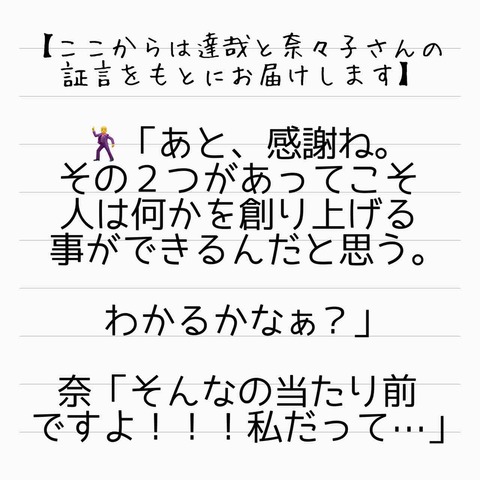 【ここからは達哉と奈々子さんの
証言をもとにお届けします】
🕺「あと、感謝ね。
その２つがあってこそ
人は何かを創り上げる
事ができるんだと思う。
わかるかなぁ？」
奈「そんなの当たり前
ですよ！！！私だって…」